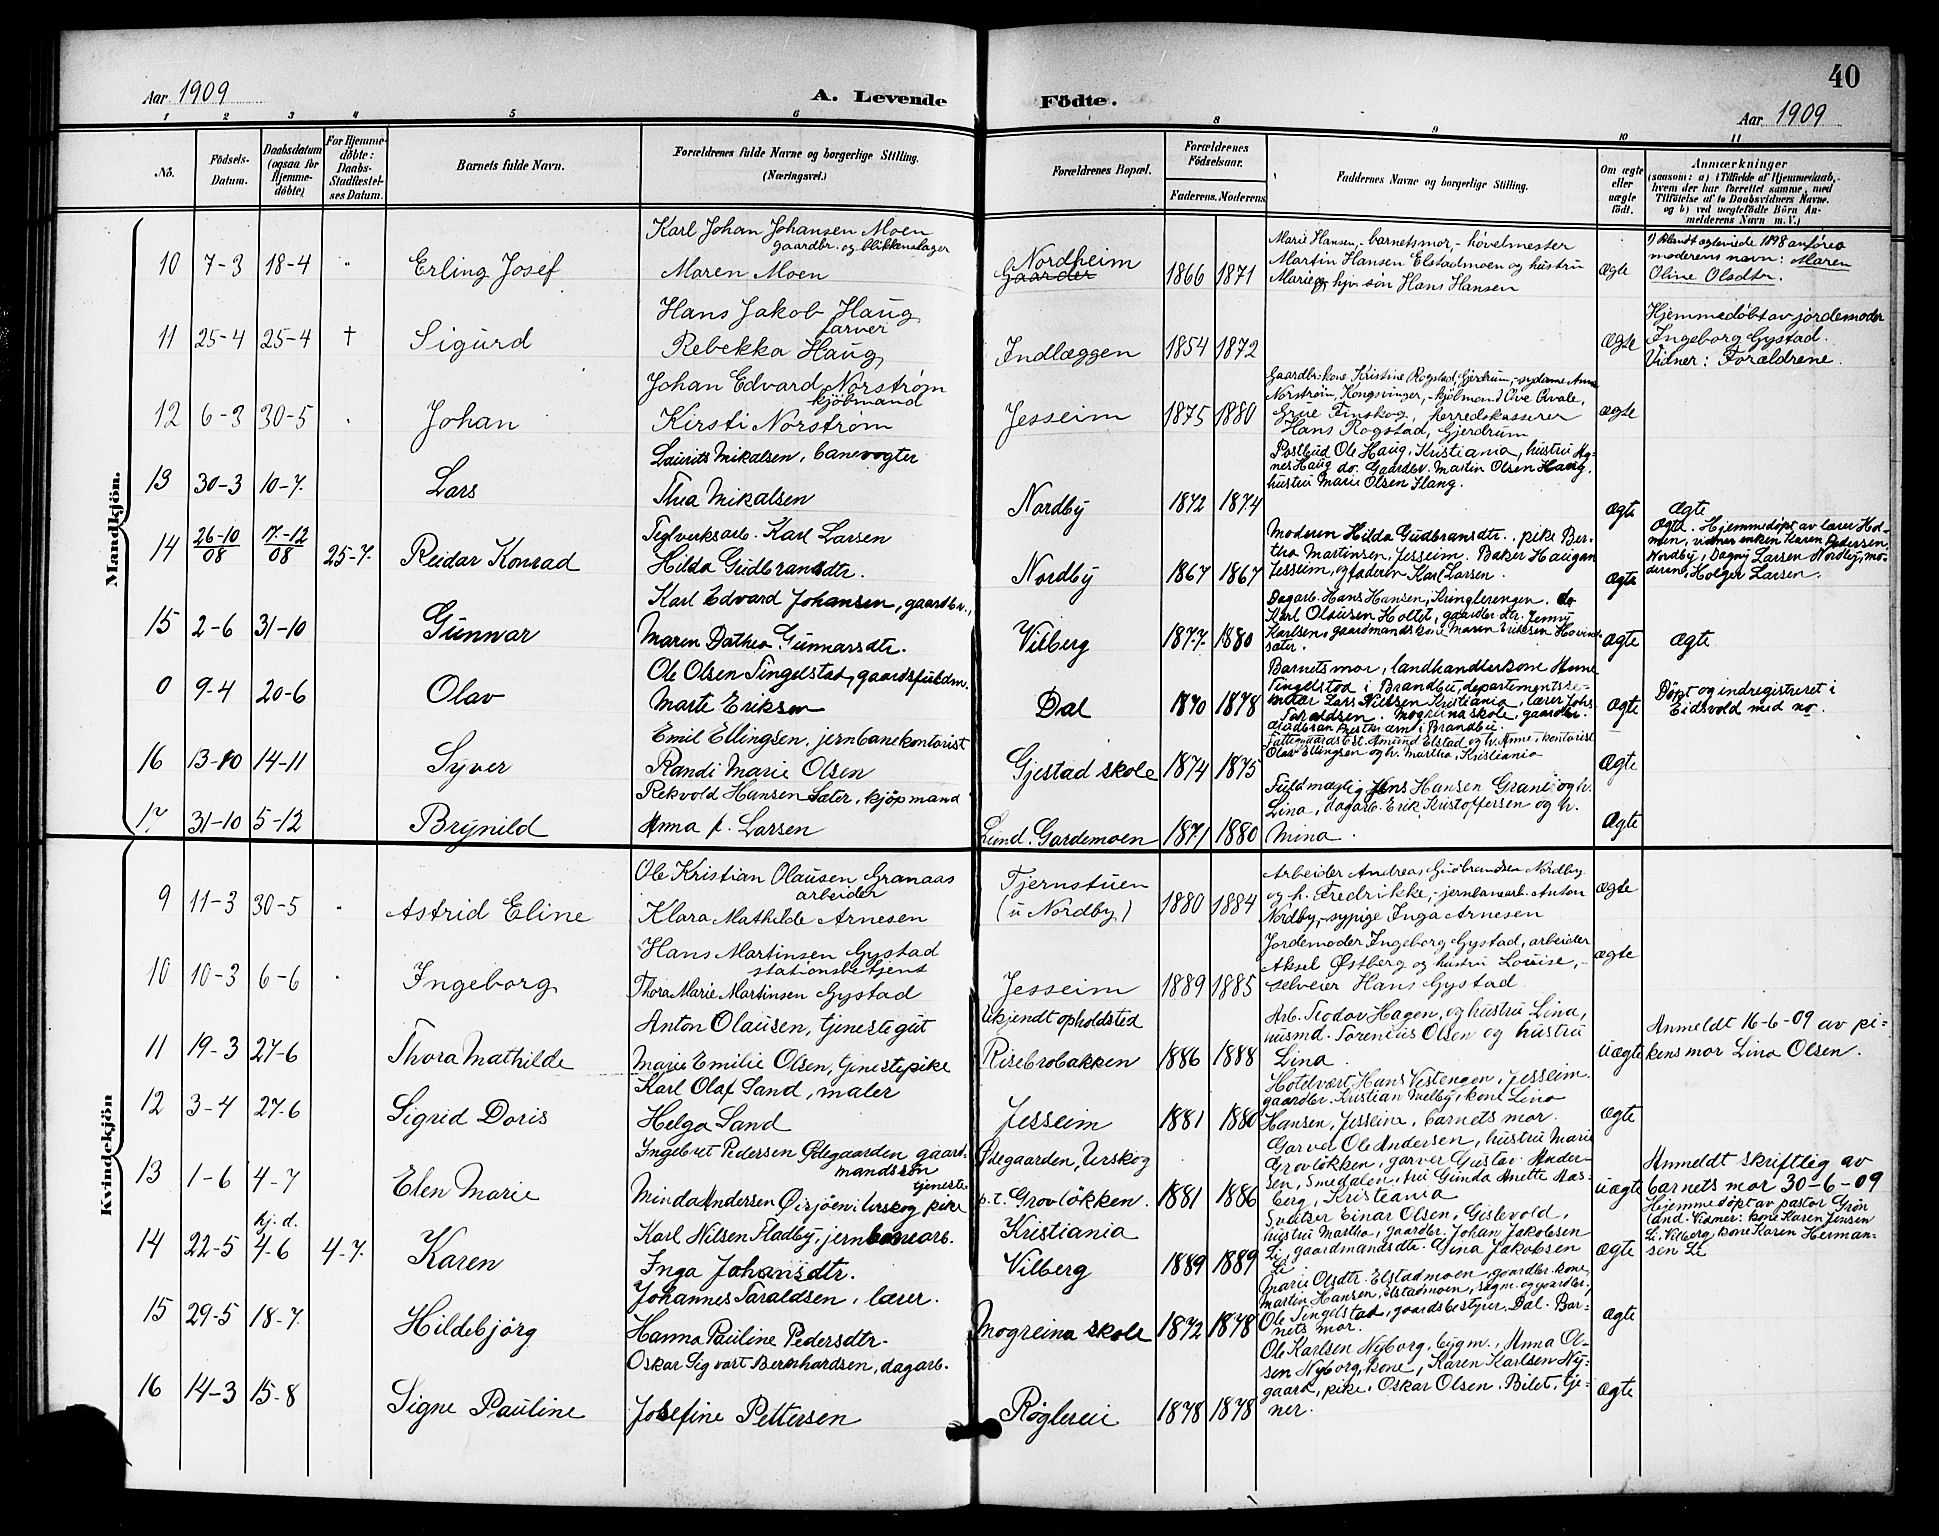 40
Aar 1909
A. Levende Födte.
Aar 1909
1 2 3 4 5 6 8 9 10 11
No.
Födsels-Datum.
Daabsdatum (ogsaa for Hjemme-döbte)
For Hjemme-döbte: Daabs-Stadfæstel-ses Datum.
Barnets fulde Navn.
Forældrenes fulde Navne og borgerlige Stilling.
(Næringsvei.)
Forældrenes Bopæl.
Forældrenes Födselsaar.
Faderens. Moderens.
Faddernes Navne og borgerlige Stilling.
Om ægte eller uægte födt.
Anmærkninger
(saasom: a) i Tilfælde af Hjemmedaab,
hvem der har forrettet samme, med
Tilföielse af to Daabsvidners Navne.
og b) ved uægtefödte Börn An-
melderens Navn m. V.)
Mandkjön.
10 7-3 18-4 " Erling Josef
Karl Johan Johansen Moen
gaardbr. og blikkenslager
Maren Moen
Nordheim
Gaarder
1866 1871
Marie Hansen, - barnetsmor, - høvelmester
Martin Hansen Elstadmoen og hustru
Marie og hjv. søn Hans Hansen
Ægte
1) Blandt ægteviede 1898 anføres
moderens navn: Maren
Oline Olsdtr.
11 25-4 25-4 † Sigurd
Hans Jakob Haug
Garver
Rebekka Haug
Indlæggen
1854 1872
Ægte
Hjemmedøbt av jordemoder
Ingeborg Gystad.
Vidner: Forældrene.
12 6-3 30-5 . Johan
Johan Edvard Norstrøm
kjøbmand
Kirsti Norstrøm
Jesseim
1875 1880
Gaardbr: kone Kristine Rogstad, Gjerdrum, - sydame Anna
Norstrøm, Kongsvinger, - kjøbmand Ove Qvale,
Grue Finskog, herredskasserer
Hans Rogstad, Gjerdrum
ægte
13 30-3 10-7. Lars
Laurits Mikalsen, banevogter
Thea Mikalsen
Nordby
1872 1874
Postbud Ole Haug, Kristiania, hustru Ag-
nes Haug do. Gaardbr. Martin Olsen Haug,
hustru Marie Olsen Haug.
Ægte
Ægte
14 26-10/08 17-12/08 25-7. Reidar Konrad
Teglverksarb. Karl Larsen
Hilda Gudbransdtr.
Nordby
1867 1867
Moderen Hilda Gudbransdtr., pike Ber-
tha Martinsen, Jesseim. Baker Haugan
Jesseim, og faderen Karl Larsen.
Ægte
Ægte. Hjemmedøpt av lærer Hol-
men, vidner enken Karen Pedersen,
Nordby, Dagny Larsen Nordby, mo-
deren, Holger Larsen.
15 2-6 31-10 Gunnar
Karl Edvard Johansen, gaardbr.,
Maren Dathea Gunnarsdtr.
Vilberg
1877. 1880
Dagarb. Hans Hansen, Kringlerengen. do
Karl Olausen Holtet, gaardbr. dtr. Jenny
Karlsen, gaardmandskone Maren Eriksen Hovind-
sæter.
Ægte
Ægte
0 9-4 20-6 Olav
Ole Olsen Tingelstad, gaardsfuldm.
Marte Eriksen
Dal
1870 1878
Barnets mor, landhandlerkone Anne
Tingelstad i Brandbu, departementsse-
kretær Lars Nielsen Kristiania, lærer Johs.
Taraldsen. Mogreina skole, gaardbr.
Gudbran i Brandbu.
Ægte
Døpt og indregistreret i
Eidsvold med no.
16 13-10 14-11 Syver
Emil Ellingsen. jernbanekontorist
Randi Marie Olsen
Gjestad skole
1874 1875
Fattiggaardsbest. Amund Elstad og h. Anne, kontorist
Olav Ellingsen og h. Martha, Kristiania
Ægte
17 31-10 5-12 Brynild
Rekvold Hansen Sæter, kjøpmand
Anna f. Larsen
Lund. Gardemoen
1871 1880
Fuldmægtig Jens Hansen Grani og h.
Lina, dagarb. Erik Kristoffersen og h.
Mina.
Ægte
Kvindekjön
9 11-3 30-5 . Astrid Eline
Ole Kristian Olausen Granaas
arbeider
Klara Mathilde Arnesen
Tjernstuen
(u Nordby)
1880 1884
Arbeider Andreas Gudbrandsen Nordby
og h. Fredrikke, - jernbanearb. Anton
Nordby, - sypige Inga Arnesen
ægte
10 10-3 6-6 . Ingeborg
Hans Martinsen Gystad
stationsbetjent
Thora Marie Martinsen Gystad
Jesseim
1889 1885
Jordemoder Ingeborg Gystad, arbeider
Aksel Østberg og hustru Louise, -
selveier Hans Gystad.
ægte
11 19-3 27-6 Thora Mathilde
Anton Olausen, tjenestegut
Marie Emilie Olsen, tjenestepike
Ukjendt opholdsted
Risebrobakken
1886 1888
Arb. Teodor Hagen, og hustru Lina,
husmd. Torenius Olsen og hustru
Lina.
uægte
Anmeldt 16-6-09 av pi-
kens mor Lina Olsen.
12 3-4 27-6 Sigrid Doris
Karl Olaf Sand, maler
Helga Sand
Jesseim
1881 1880
Hotelvært Hans Vestengen, Jesseim.
gaardbr. Kristian Melby, kone Lina
Hansen, Jesseim, barnets mor.
Ægte
13 1-6 4-7 Elen Marie
Ingebret Pedersen Ødegaarden gaard-
mandssøn
tjeneste
Minda Andersen Øirjøen i Urskog pike
Ødegaarden, Urskog
p.t. Grovløkken.
1881 1886
Garver Ole Andersen, hustru Marie
Grovløkken, garver Gustav Ander-
sen, Smedalen, fru Gunda Anette Aas-
berg, Kristiania
uægte
Anmeldt skriftlig av
barnets mor 30-6-09
14 22-5 hj. d. 4-6 4-7. Karen
Karl Nilsen Fladby, jernbanearb.
Inga Johansdtr.
Kristiania
Vilberg
1889 1889
Sveitser Einar Olsen, Gislevold,
hustru Martha, gaardbr. Johan Jakobsen
Li, gaardmandsdtr. Dina Jakobsen
Li
Ægte
Hjemmedøpt av pastor Grøn
land. Vidner: kone Karen Jensen
Li, Vilberg, kone Karen Herman-
sen Li
15 29-5 18-7. Hildebjörg
Johannes Taraldsen, lærer.
Hanna Pauline Pedersdtr.
Mogreina skole
1872 1878
Marie Olsdtr. Elstadmoen, gaardbr. kone,
Martin Hansen, Elstadmoen, sagm. og gaardbr.,
Ole Tingelstad, gaardsbestyrer, Dal. Bar-
nets mor.
Ægte
16 14-3 15-8 Signe Pauline
Oskar Sigvart Bernhardsen, dagarb.
Josefine Pettersen
Røglereie
1878 1878
Ole Karlsen Nyborg, bygm., Anna Ol-
sen Nyborg, kone, Karen Karlsen Ny-
gaard, pike, Oskar Olsen, Bilet, tje-
ner.
Ægte